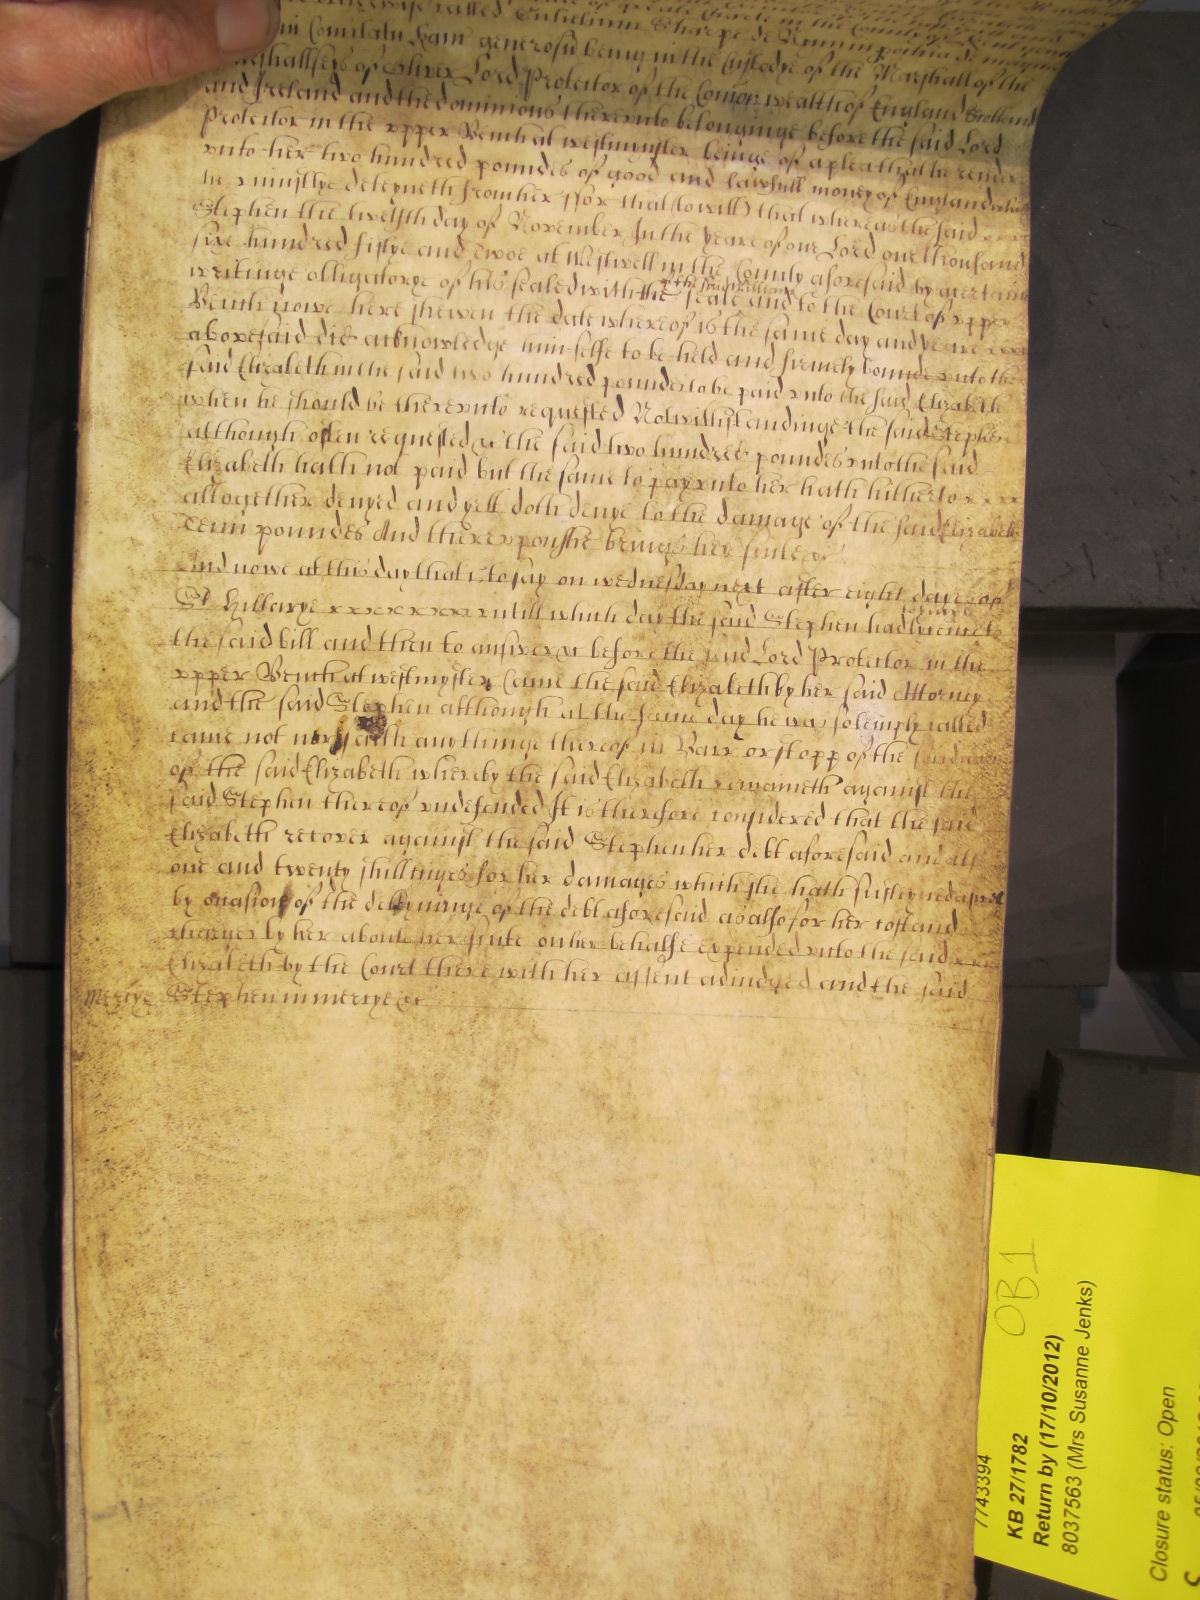 in Comitatu Kanc generosu being in the Custodye of the Marshall of the
Marshallsey of Oliver Lord Protector of the Comonwealth of England Scotland
and Ireland and the dominions thereunto belonginge before the said Lord
Protector in the upper Bench at westmynster beinge of a plea that he render
unto her two hundred poundes of good and lawfull money of England which
he uniustlye deteyneth from her ffor that (to witt) that whereas the said
Stephen the twelfth day of November In the yeare of our Lord one thousand
six hundred fiftye and twoe at Westwell in the County aforesaid by a certaine
writinge obligatorye of his sealed with the seale and to the Court of upper
Bench nowe here shewen the date whereof is the same day and yeare
abovesaid did acknowledge him selfe to be held and firmely bounde unto the
said Elizabeth in the said two hundred poundes to be paid unto the said Elizabeth
when he should be thereunto requested Notwithstandinge the said Stephen
although often requested &c the said two hundred poundes unto the said
Elizabeth hath not paid but the same to pay unto her hath hitherto
altogether denyed and yett doth denye to the damage of the said Elizabeth
Tenn poundes And thereupon she brings her suite &c
And nowe at this day that is to say on wednesday next after eight dayes of
St Hillarye x x x x x x x x untill which day the said Stephen had lycence to
the said bill and then to answer &c before the said Lord Protector in the
upper Bench at westmynster Came the said Elizabeth by her said Attorney
and the said Stephen although at the same day he was solemply called
came not nor saith any thinge thereof in Barr or stopp of the said
of the said Elizabeth whereby the said Elizabeth remaineth against the
said Stephen thereof undefended It is therefore considered that the said
Elizabeth recover against the said Stephen her debt aforesaid and
one and twenty shillinges for her damages which she hath susteyned
by occasion of the deteyninge of the debt aforesaid as also for her costs and
charges by her about her suite on her behalfe expended unto the said
Elizabeth by the Court there with her assent adiudged and the said
Mercye Stephen in mercye &c
OB1
7743394
KB 27/1782
Return by (17/10/2012)
8037563 (Mrs Susanne Jenks)
Closure status: Open